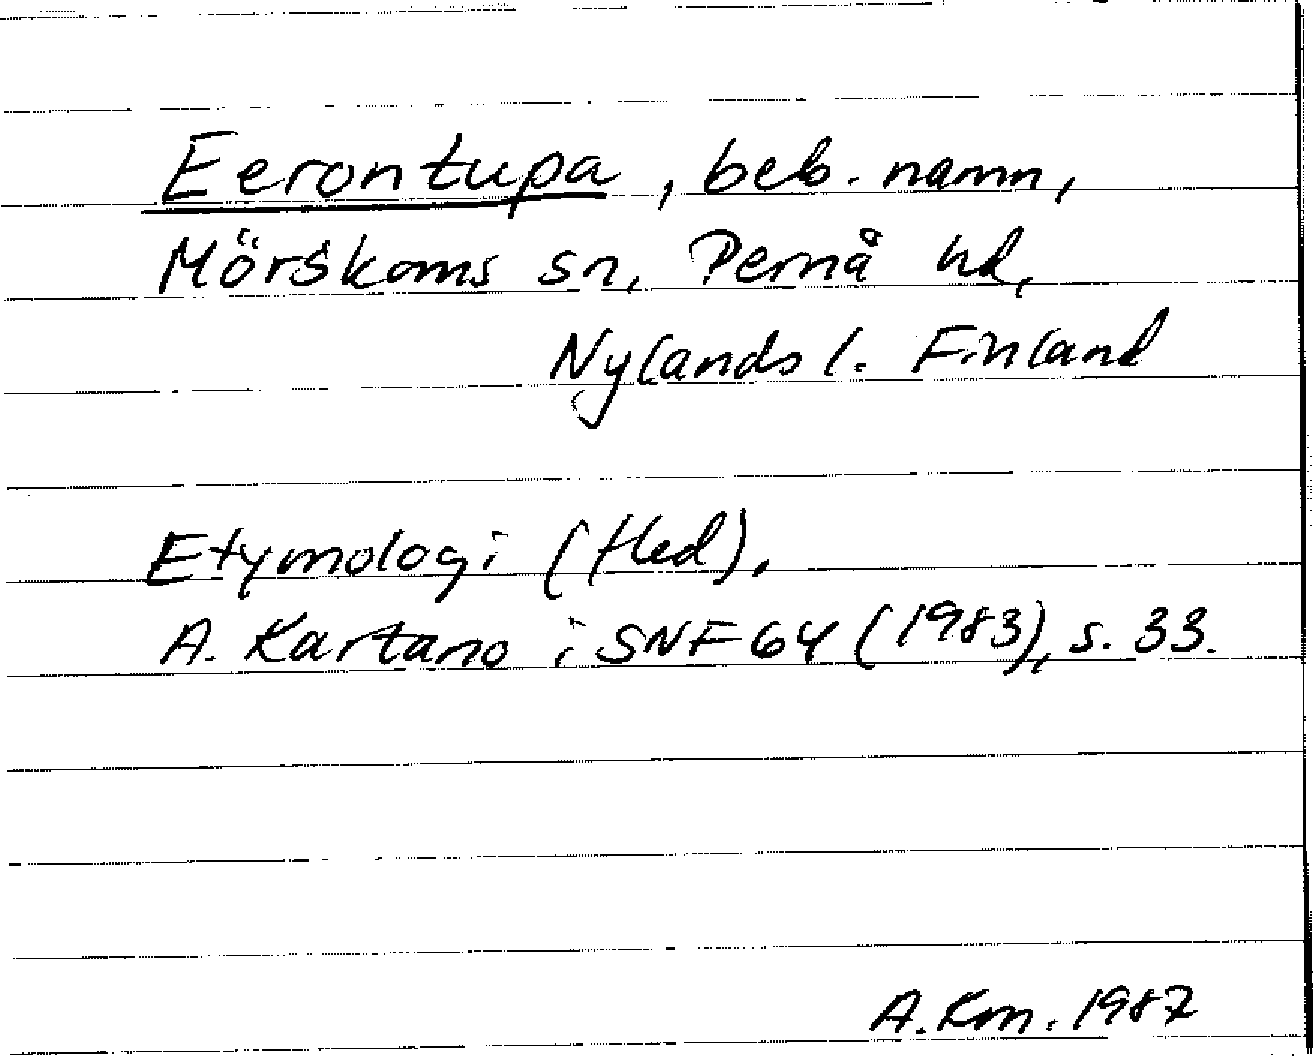 Eerontupa, beb. namn,
Mörskoms sn, Pernå hd,
Nylands l. Finland
Etymologi (fled).
A. Kartano i SNF 64 (1983), s. 33.
A. Km. 1987